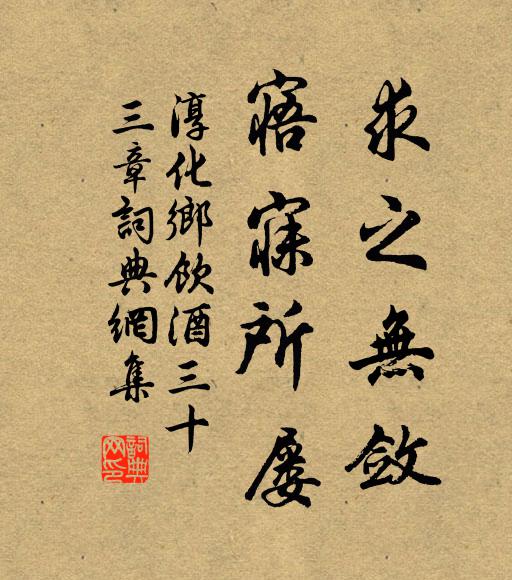 求之無斂
寤寐所屡
淳化鄉飲酒三十
三章詞典網集
詞典
网印